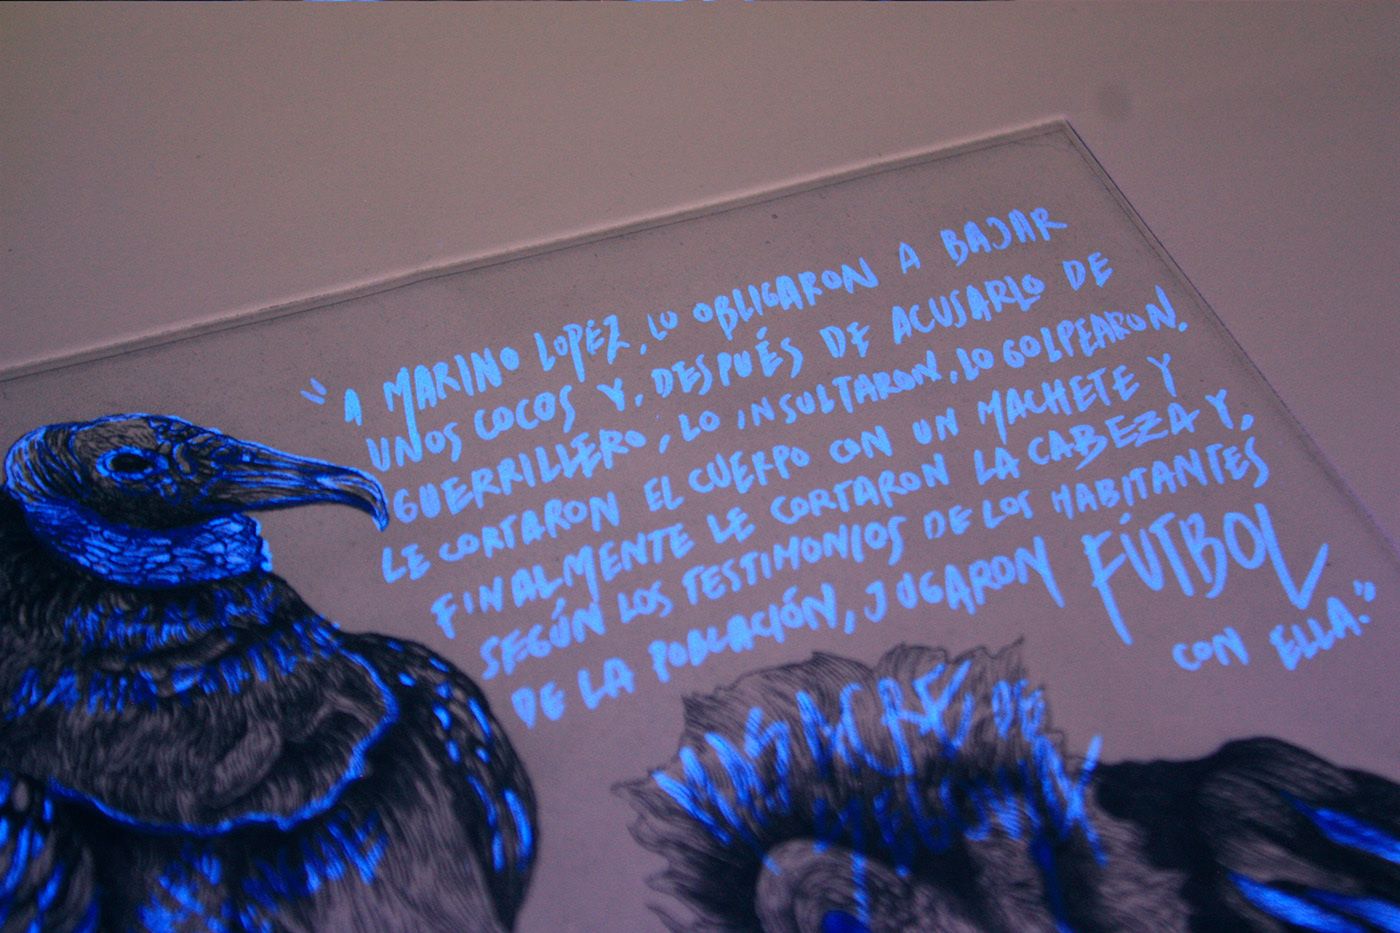 "A MARINO LOPÉZ, LO OBLIGARON A BAJAR
UNOS COCOS Y, DESPUÉS DE ACUSARLO DE
GUERRILLERO, LO INSULTARON, LO GOLPEARON,
LE CORTARON EL CUERPO CON UN MACHETE Y
FINALMENTE LE CORTARON LA CABEZA Y,
SEGÚN LOS TESTIMONIOS DE LOS HABITANTES
DE LA POBLACIÓN, JUGARON FÚTBOL
CON ELLA."
MASACRE DE